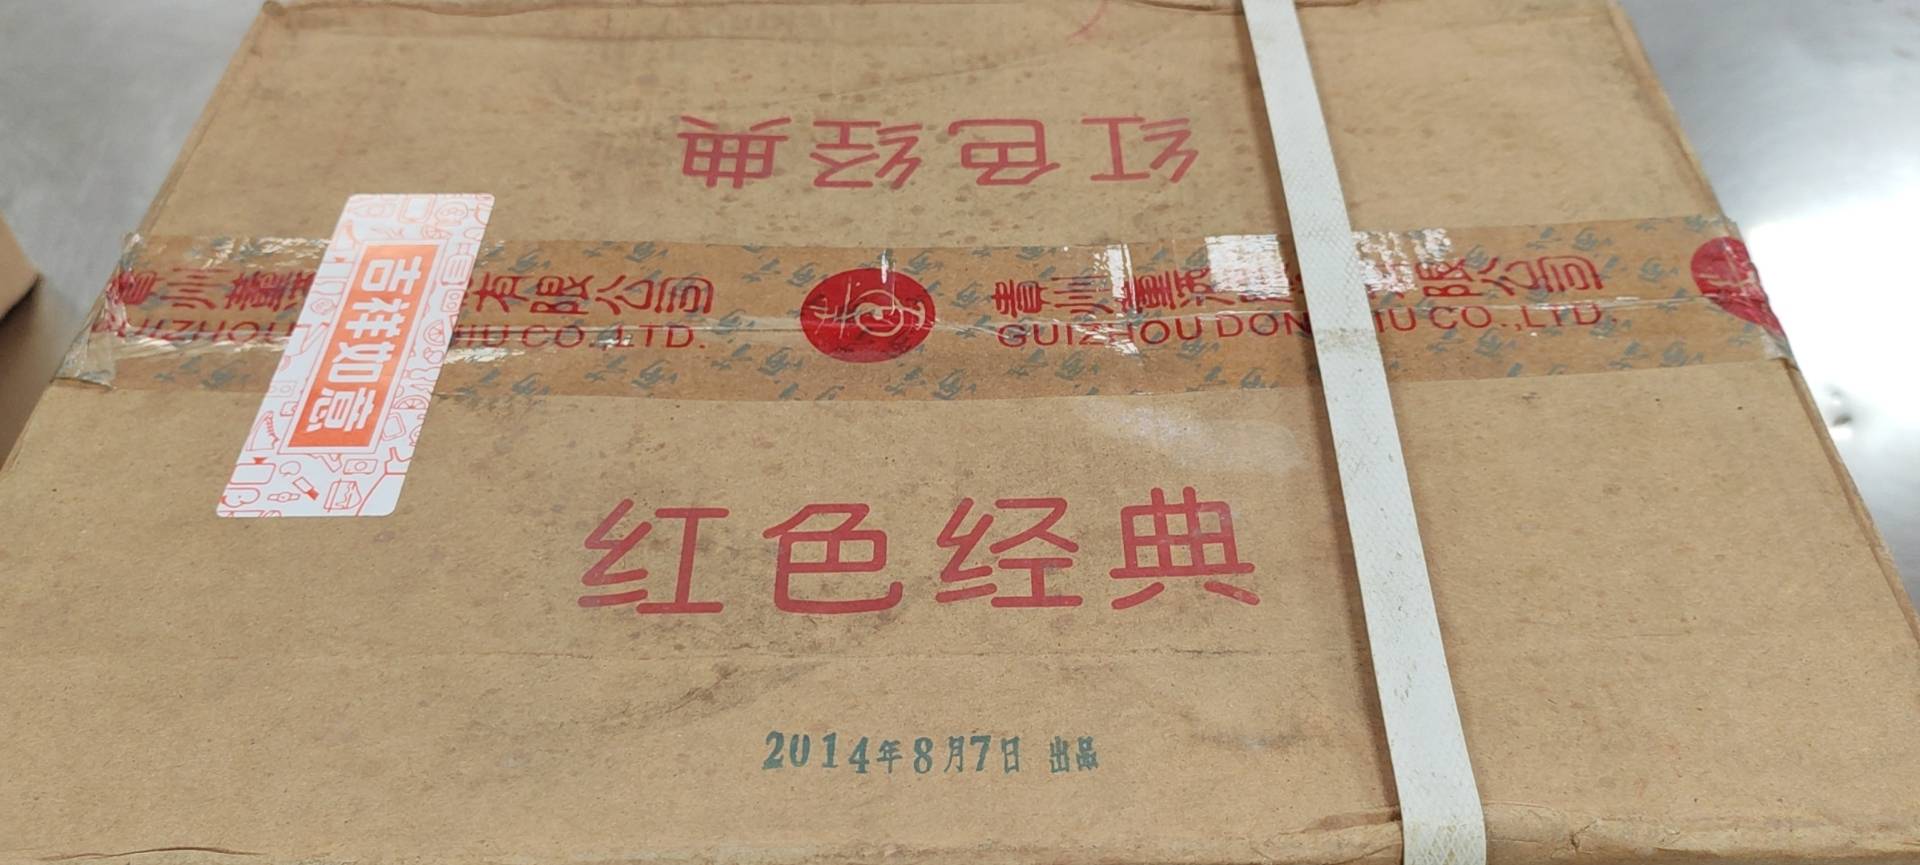 红色经典
贵州董 有限公司
GUIZHOU JIU CO.,LTD.
贵州董酒 有限公司
GUIZHOU DON IU CO.,LTD.
吉祥如意
红色经典
2014年8月7日 出品